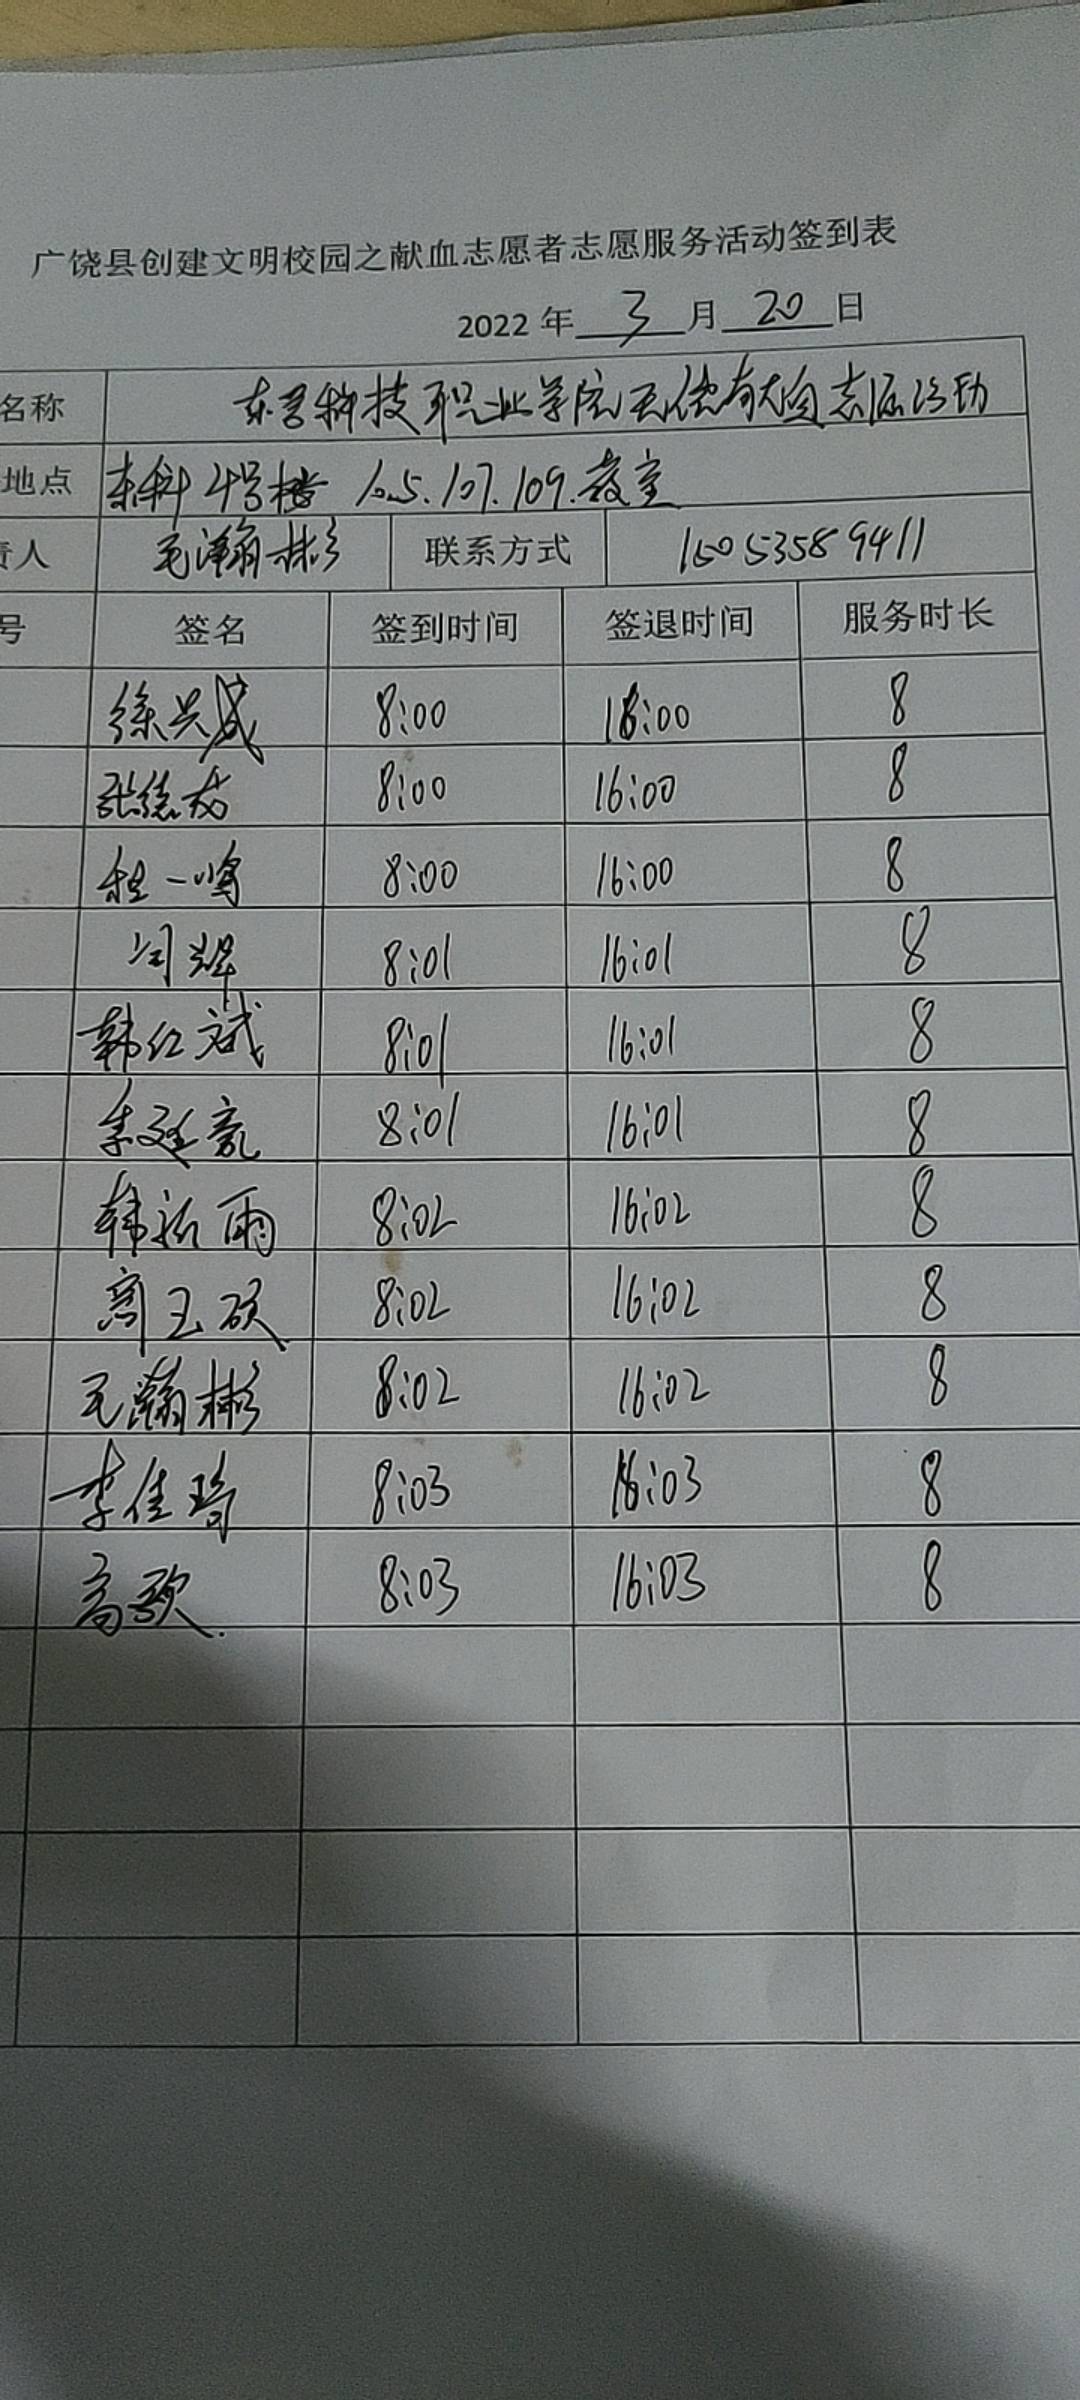 广饶县创建文明校园之献血志愿者志愿服务活动签到表
2022 年 3 月 20 日
名称 东营科技职业学院无偿献血志愿活动
地点 东科 4号楼 105.107.109.教室
责人 毛瀚彬 联系方式 15053589411
号 签名 签到时间 签退时间 服务时长
徐兴成 8:00 16:00 8
张德龙 8:00 16:00 8
程一鸣 8:00 16:00 8
闫辉 8:01 16:01 8
韩红斌 8:01 16:01 8
李延亮 8:01 16:01 8
韩新雨 8:02 16:02 8
周玉硕 8:02 16:02 8
毛瀚彬 8:02 16:02 8
李佳琦 8:03 16:03 8
高歌 8:03 16:03 8